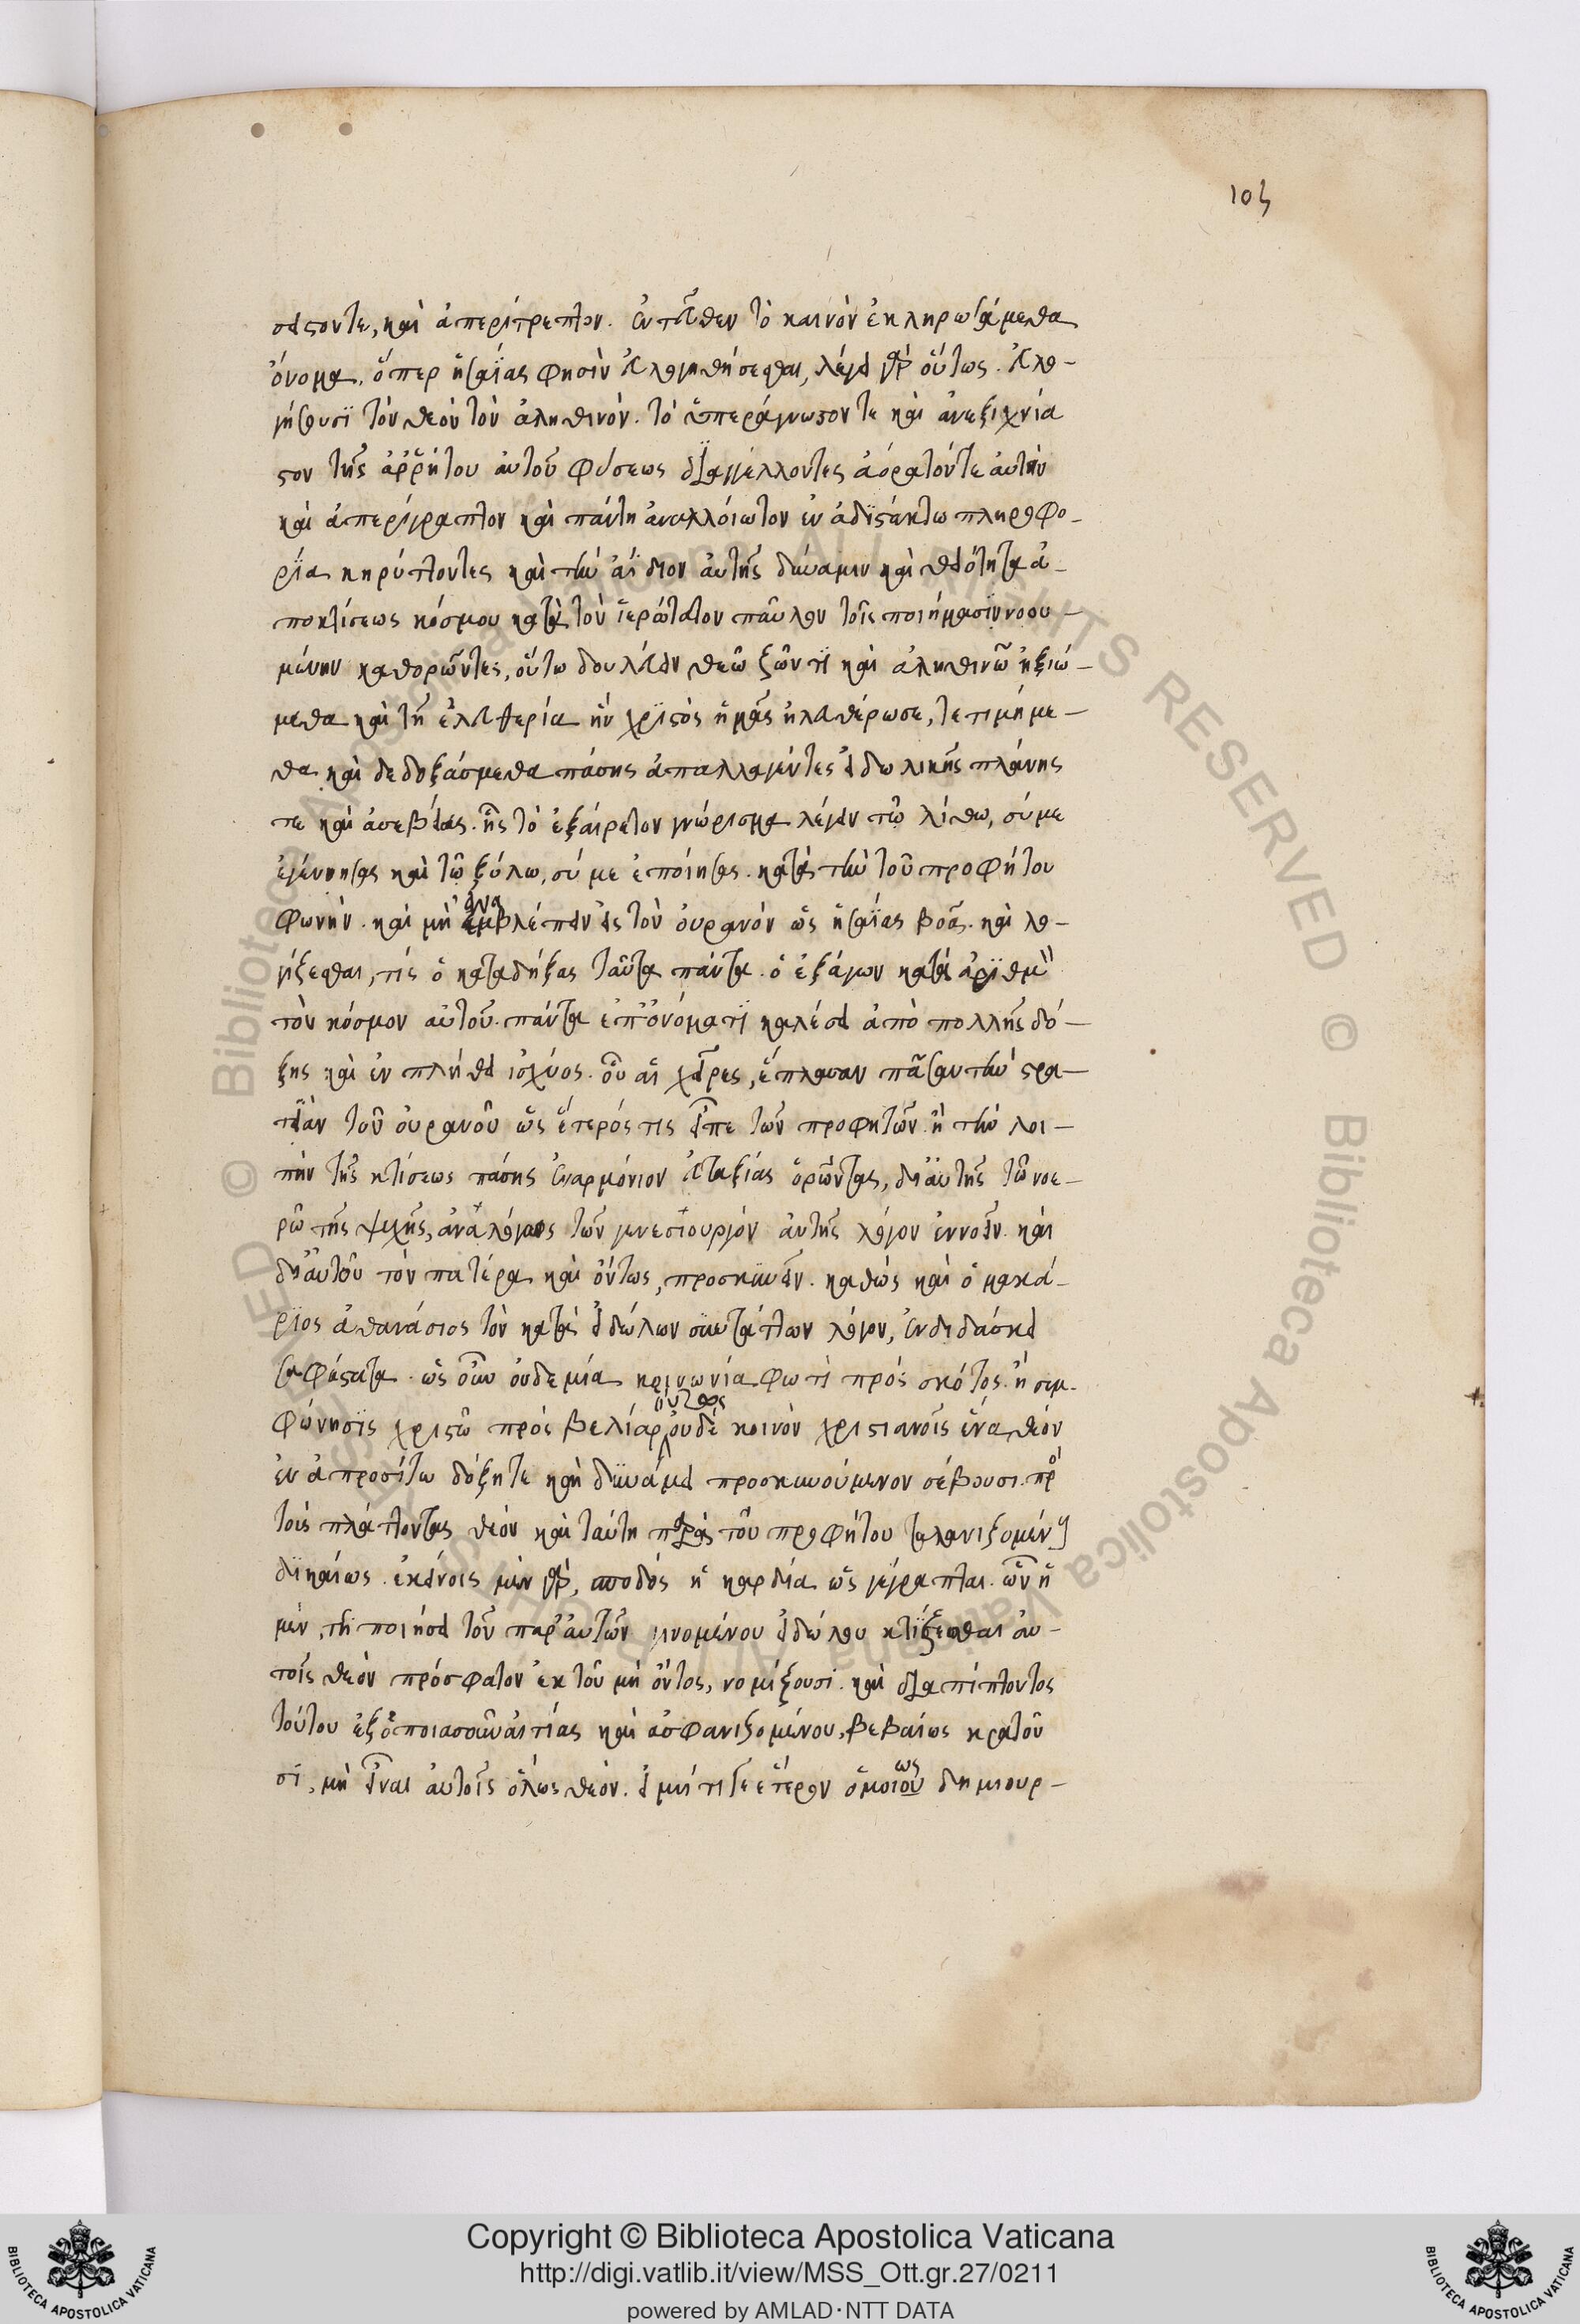 105
σειστόν τε, καὶ ἀπερίτρεπτον. ἐντεῦθεν τὸ καινὸν ἐκληρωσάμεθα
ὄνομα. ὅπερ ἡσαΐας φησὶν εὐλογηθήσεσθαι, λέγει γὰρ οὕτως. εὐλο-
γήσουσι τὸν θεὸν τὸν ἀληθινὸν. τὸ ὑπεράγνωστόν τε καὶ ἀνεξιχνία
στον τῆς ἀρρήτου αὐτοῦ φύσεως διαγγέλλοντες ἀόρατόν τε αὐτὴν
καὶ ἀπερίγραπτον καὶ πάντη ἀναλλοίωτον ἐν ἀδιστάκτω πληροφο-
ρία κηρύττοντες καὶ τὴν ἀΐδιον αὐτῆς δύναμιν καὶ θειότητα ἀ-
πο κτίσεως κόσμου κατὰ τὸν ἱερώτατον παῦλον τοῖς ποιήμασι νοου-
μένην καθορῶντες, οὕτω δουλεύειν θεῶ ζῶντι καὶ ἀληθινῶ ἠξιώ-
μεθα καὶ τῆ ἐλευθερία ἣν χριστὸς ἡμᾶς ἠλευθέρωσε, τετιμήμε-
θα καὶ δεδοξάσμεθα πάσης ἀπαλλαγέντες εἰδωλικῆς πλάνης
τε καὶ ἀσεβείας. ἧς τὸ ἐξαίρετον γνώρισμα λέγειν τῶ λίθω, σύ με
ἐγέννησας καὶ τῶ ξύλω, σύ με ἐποίησας. κατὰ τὴν τοῦ προφήτου
φωνὴν. καὶ μὴ ἀναβλέπειν εἰς τὸν οὐρανὸν ὡς ἡσαΐας βοᾶ. καὶ λο-
γίζεσθαι, τίς ὁ καταδείξας ταῦτα πάντα. ὁ ἐξάγων κατὰ ἀριθμὸν
τὸν κόσμον αὐτοῦ. πάντα ἐπ' ὀνόματι καλέσει ἀπὸ πολλῆς δό-
ξης καὶ ἐν πλήθει ἰσχύος. οὗ αἱ χεῖρες, ἔπλασαν πᾶσαν τὴν στρα-
τιὰν τοῦ οὐρανοῦ ὡς ἕτερός τις εἶπε τῶν προφητῶν. ἢ τὴν λοι-
πὴν τῆς κτίσεως πάσης ἐναρμόνιον εὐταξίας ὁρῶντας, δι' αὐτῆς τῶ νοε-
ρῶ τῆς ψυχῆς, ἀναλόγως τῶν γενεσιουργὸν αὐτῆς λόγον ἐννοεῖν. καὶ
δι' αὐτοῦ τὸν πατέρα καὶ ὄντως, προσκυνεῖν. καθὼς καὶ ὁ μακά-
ριος ἀθανάσιος τὸν κατὰ εἰδώλων συντάττων λόγον, ἐνδιδάσκει
σαφέστατα. ὡς οὖν οὐδεμία κοινωνία φωτὶ πρὸς σκότος. ἢ συμ-
φώνησις χριστῶ πρὸς βελίαρ οὕτως οὐδὲ κοινὸν χριστιανοῖς ἕνα θεὸν
ἐν ἀπροσίτω δόξη τε καὶ δυνάμει προσκυνούμενον σέβουσι. πρὸς
τοὺς πλάττοντας θεὸν καὶ ταύτη παρὰ τοῦ προφήτου ταλανιζομένους
δικαίως. ἐκείνοις μὲν γὰρ, σποδὸς ἡ καρδία ὡς γέγραπται. ὧν ἡ
μὲν, τῆ ποιήσει τοῦ παρ' αὐτῶν γινομένου εἰδώλου κτίζεσθαι αὐ-
τοῖς θεὸν πρόσφατον ἐκ τοῦ μὴ ὄντος, νομίζουσι. καὶ διαπίπτοντος
τούτου ἐξ ὁποιασοῦν αἰτίας καὶ ἀφανιζομένου, βεβαίως κρατοῦ
σι, μὴ εἶναι αὐτοῖς ὅλως θεὸν. εἰ μή τί γε ἕτερον ὁμοίως δημιουρ-
Copyright © Biblioteca Apostolica Vaticana
http://digi.vatlib.it/view/MSS_Ott.gr.27/0211
powered by AMLAD·NTT DATA